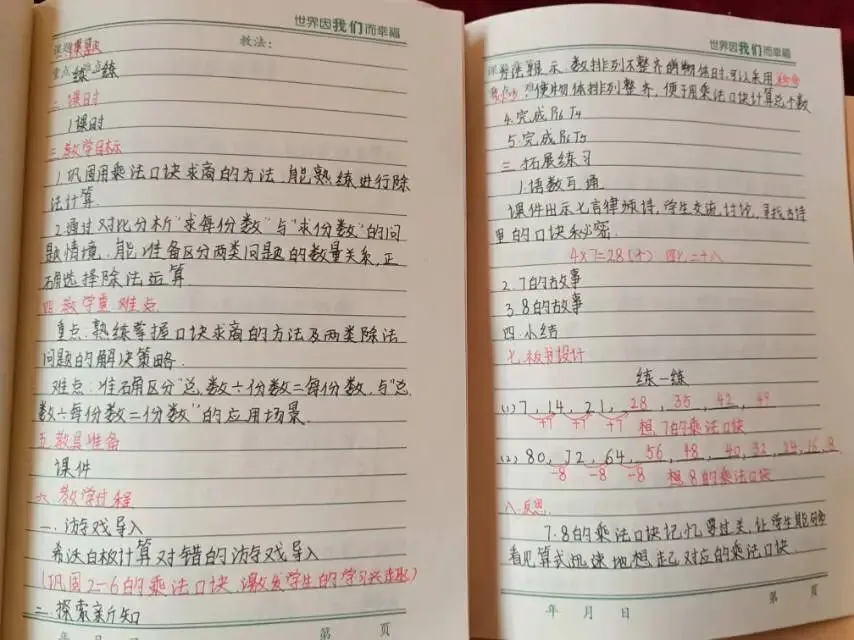 世界因我们而幸福
课题
教法：
重点
练一练
二 课时
1课时
三 教学目标
1.巩固用乘法口诀求商的方法，能熟练进行除
法计算.
2.通过对比分析“求每份数”与“求份数”的问
题情境，能准备区分两类问题的数量关系，正
确选择除法运算
四 教学重、难点
重点：熟练掌握口诀求商的方法及两类除法
问题的解决策略.
难点：准确区分“总数÷份数=每份数，与“总
数÷每份数=份数”的应用场景.
五 教具准备
课件
六 教学过程
一、游戏导入
希沃白板计算对错的游戏导入
(巩固2-6的乘法口诀，激发学生的学习兴趣)
二、探索新知
年 月 日 第 页
世界因我们而幸福
课 数排列不整齐的物体时,可以采用
使物体排列整齐，便于用乘法口诀计算总个数
4.完成P16 T4
5.完成P16 T5
三 拓展练习
1.语数互通
课件出示七言律师诗，学生交流，讨论，寻找古诗
里的口诀秘密.
4×7=28(个) 四七二十八
2.7的故事
3.8的故事
四.小结
七.板书设计
练一练
(1)7，14，21，28，35，42，49
+7 +7 +7 想7的乘法口诀
(2)80，72，64，56，48，40，32，24，16，8
-8 -8 -8 想8的乘法口诀
八.反思.
7.8的乘法口诀记忆要过关，让学生能够
看见算式迅速地想起对应的乘法口诀.
年 月 日 第 页